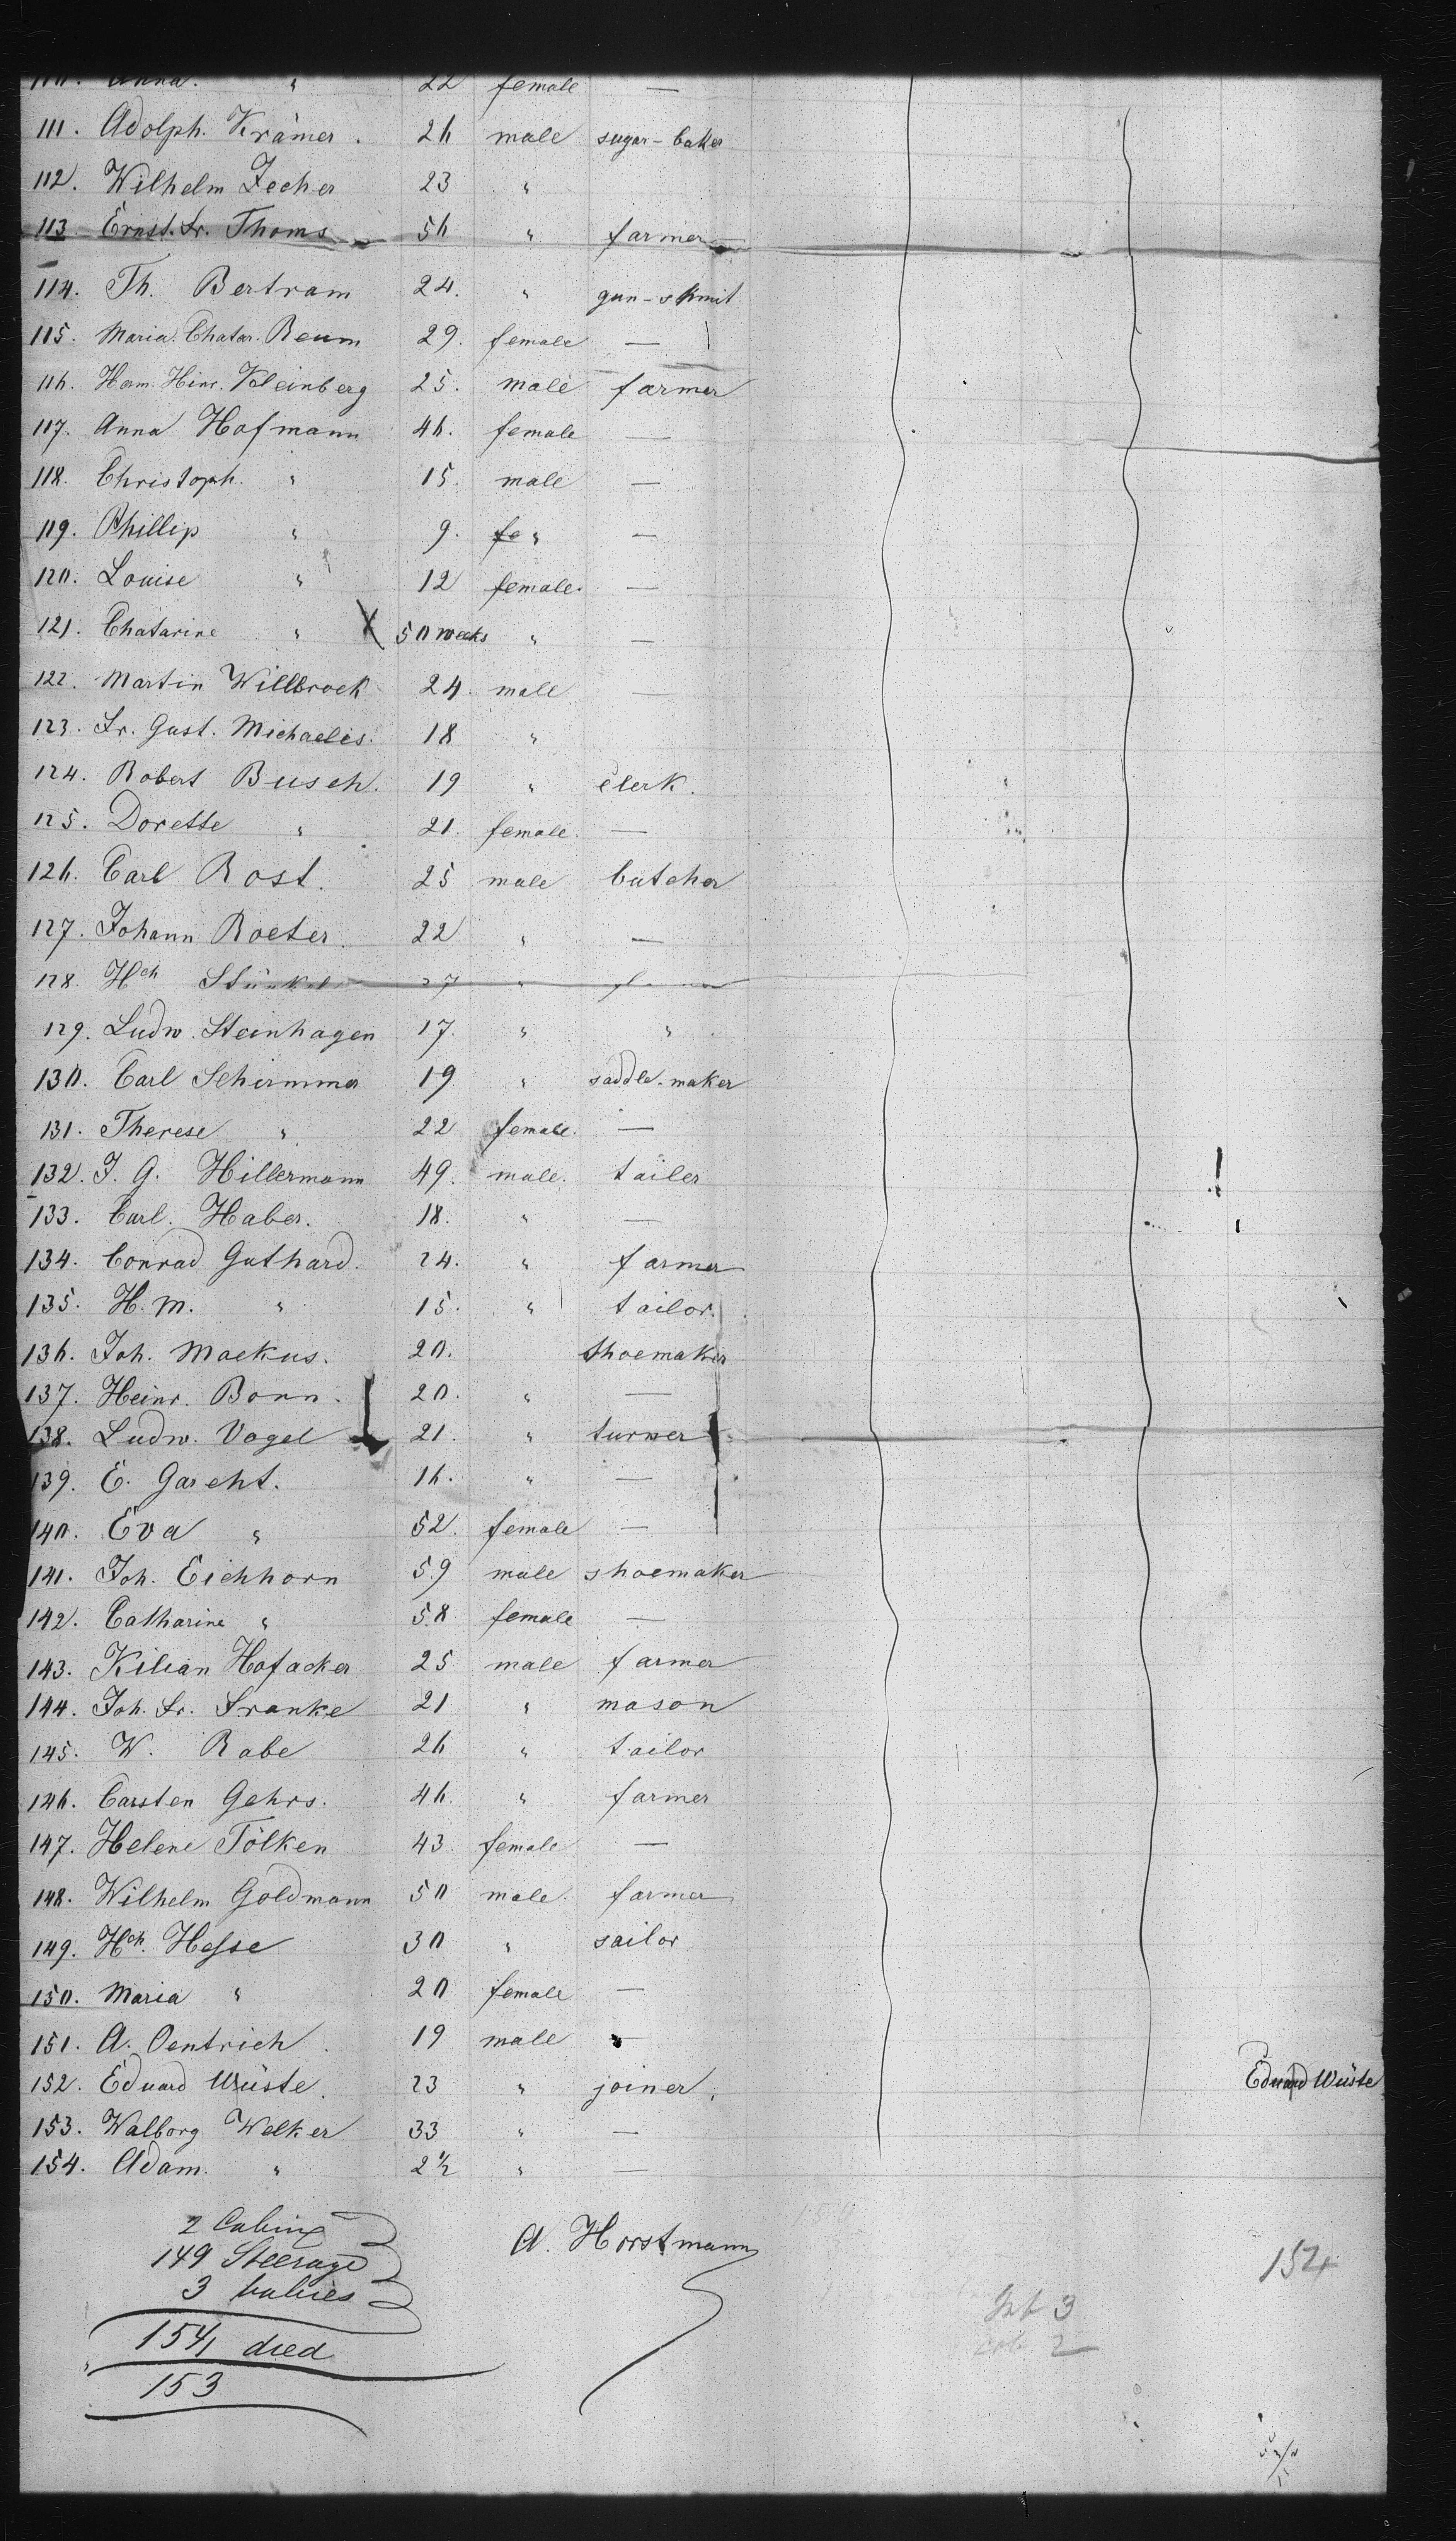 110. Anna. " 22 female —
111. Adolph. Krämer. 26 male sugar-baker
112. Wilhelm Zecher 23 "
113. Ernst. Fr. Thoms 56 " farmer
114. Th. Bertram 24. " gun-shmit
115. Maria Chatar. Reum 29. female —
116. Herm. Hinr. Kleinberg 25. male farmer
117. Anna Hofmann 46. female —
118. Christoph. " 15. male —
119. Phillip " 9. fe " —
120. Louise " 12 female. —
121. Chatarine " X 50 weeks " —
122. Martin Willbrock 24. male —
123. Fr. Gust. Michaelis. 18 "
124. Robert Busch. 19 " clerk.
125. Dorette " 21. female. —
126. Carl Rost. 25 male butcher
127. Johann Roeter. 22 " —
128. Hch Stünkel 27 "
129. Ludw. Steinhagen 17. " "
130. Carl Schirmmer 19 " saddle-maker
131. Therese " 22 female. —
132. J. G. Hillermann 49. male. tailer
133. Carl. Haber. 18. " —
134. Conrad Guthard. 24. " farmer
135. H. M. " 15. " tailor.
136. Joh. Mackus. 20. shoemaker
137. Heinr. Bonn. 20. " —
138. Ludw. Vogel 21. " turner
139. E. Garcht. 16. " —
140. Eva " 52. female —
141. Joh. Eichhorn 59 male shoemaker
142. Catharine " 58 female —
143. Kilian Hofacker 25 male farmer
144. Joh. Fr. Franke 21 " mason
145. W. Rabe 26 " tailor
146. Carsten Gehrs. 46 " farmer
147. Helene Tölken 43. female —
148. Wilhelm Goldmann 50 male. farmer
149. Hch. Hesse 30 " sailor
150. Maria " 20 female —
151. A. Oentrich 19 male —
152. Eduard Wüste. 23 " joiner. Eduard Wüste
153. Walborg Welker 33 " —
154. Adam. " 2 1/2 " —
2 Cabin
149 Steerage
3 babies
154 1 died
153
A. Horstmann
154
Inf 3
cab 2